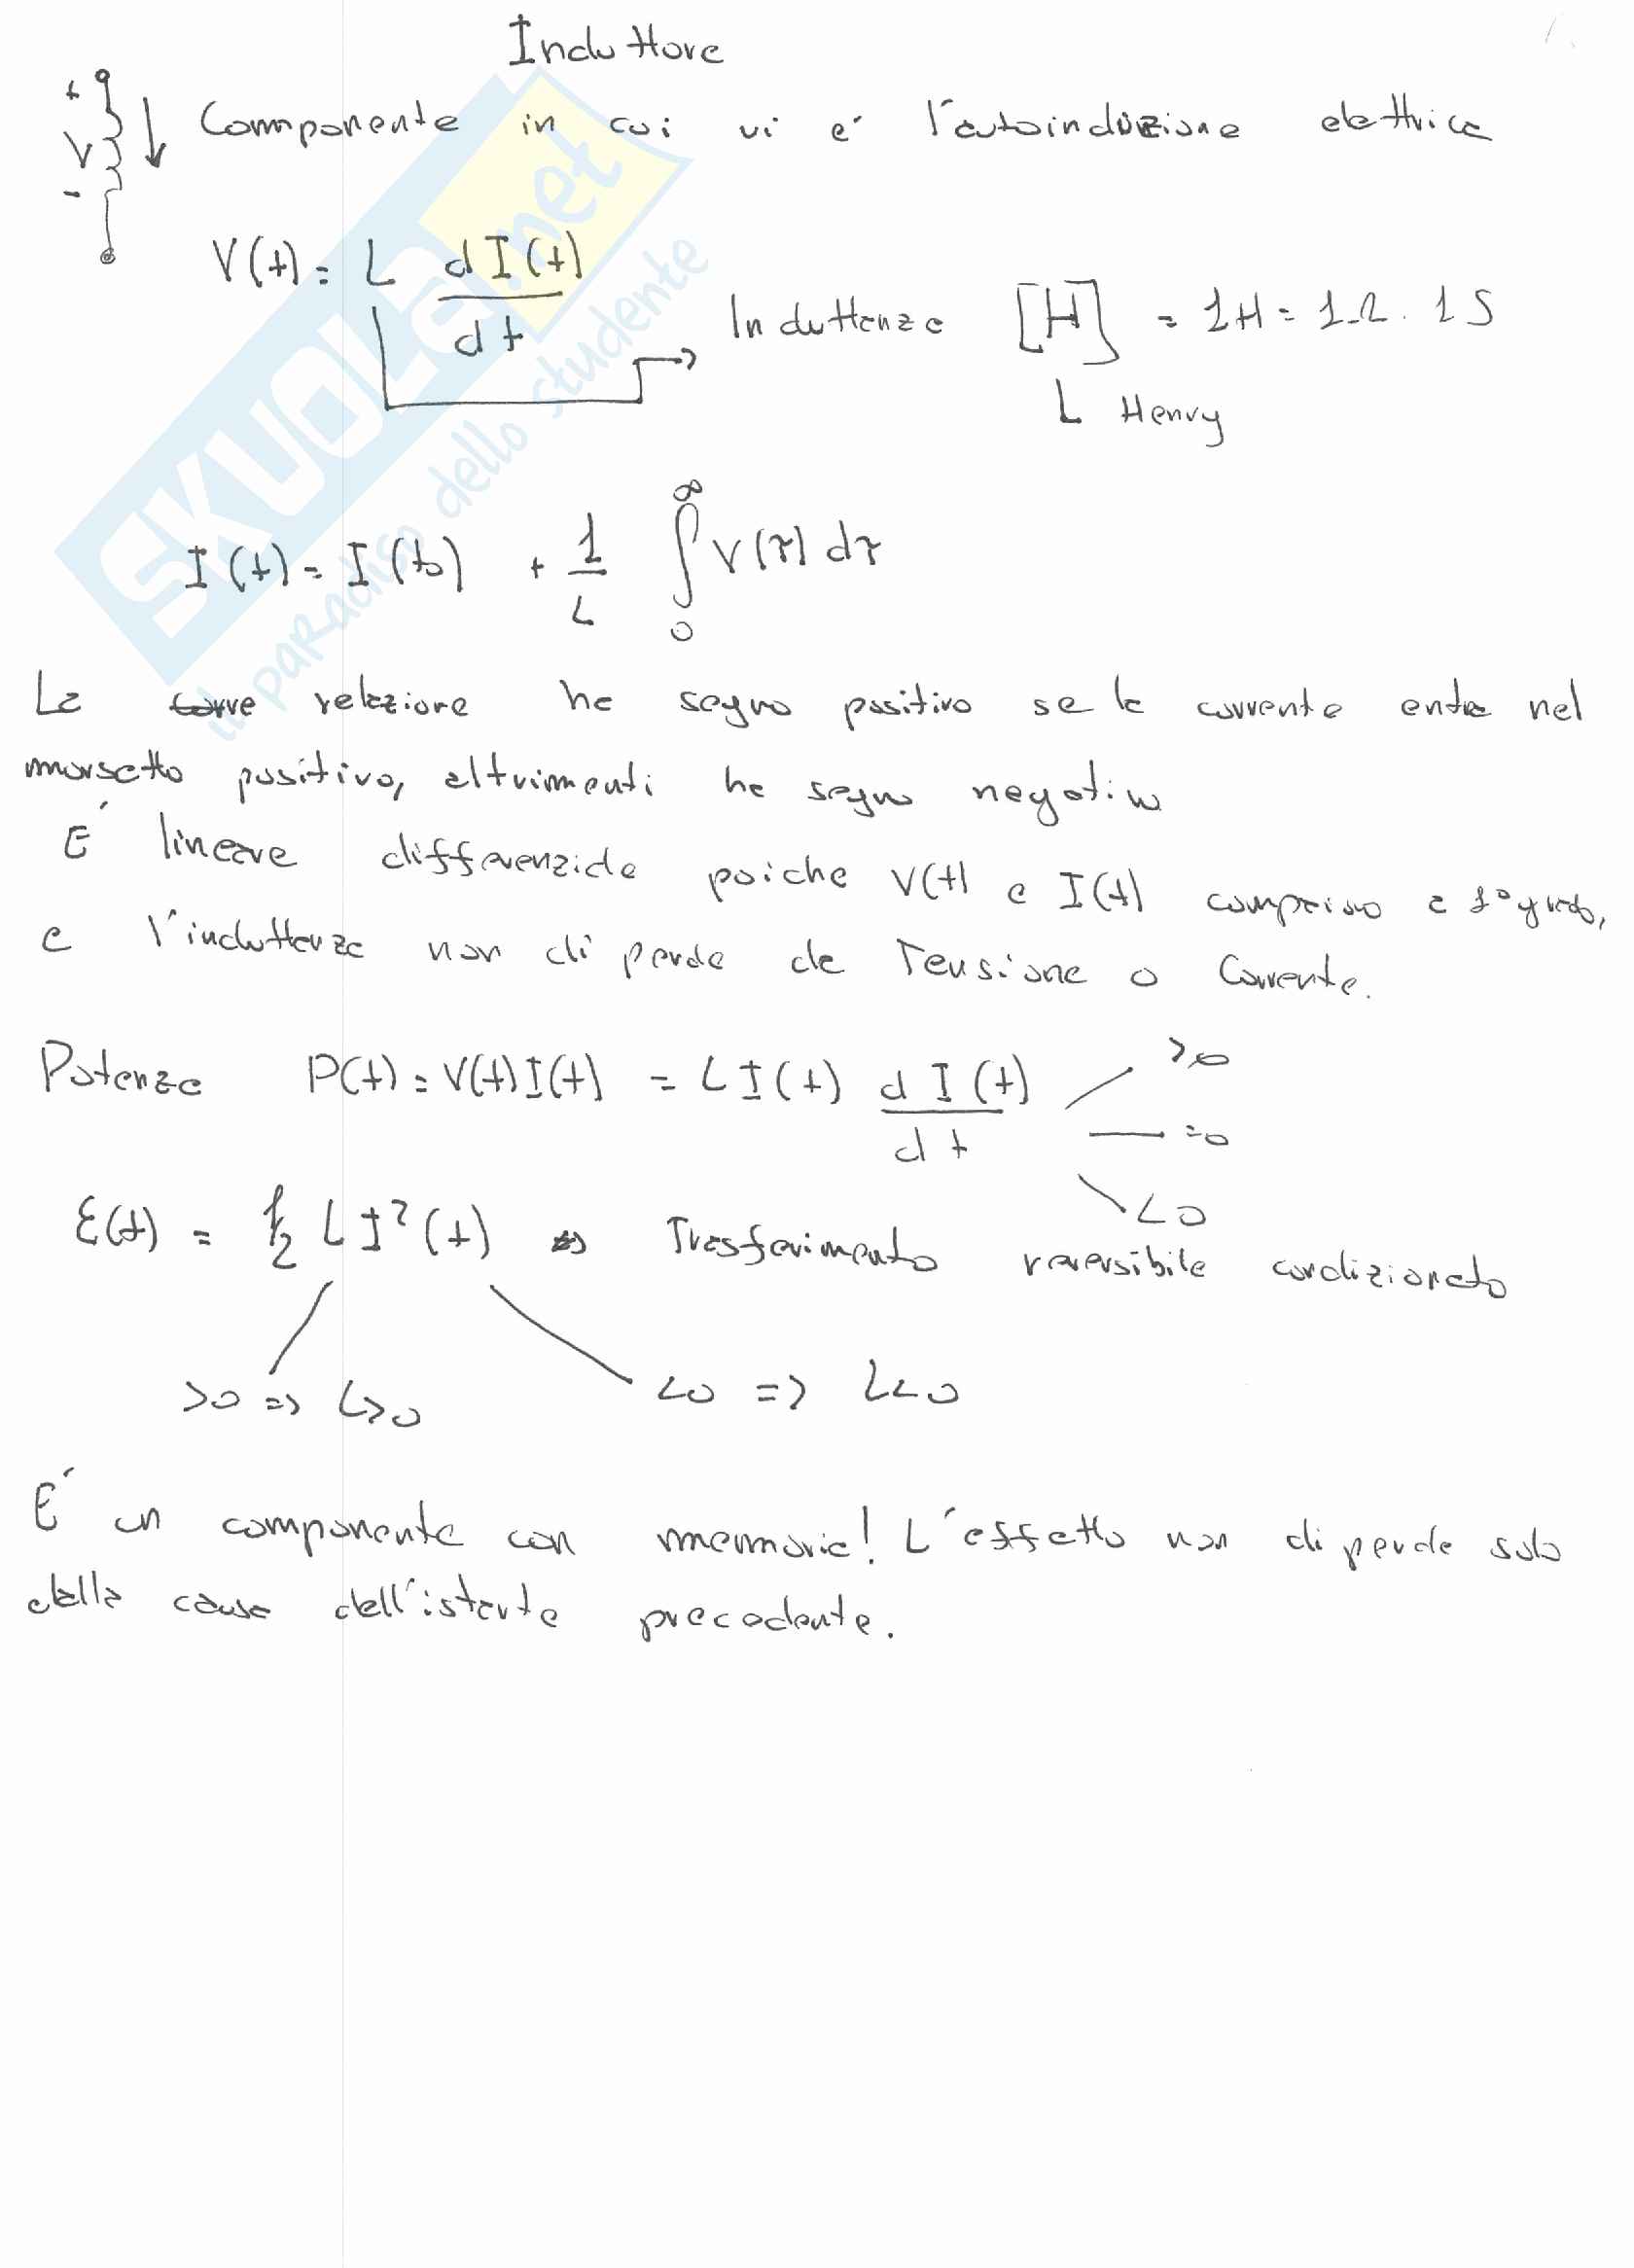 Induttore
+ V -
Componente in cui vi e' l'autoinduzione elettrica
V(t) = L dI(t)/dt
Induttanza [H] = 1H = 1Ω · 1S
Henry
I(t) = I(t0) + 1/L ∫0^∞ V(τ) dτ
La relazione ha segno positivo se la corrente entra nel
morsetto positivo, altrimenti ha segno negativo
E' lineare differenziale poiche V(t) e I(t) compaiono a 1° grado,
e l'induttanza non dipende da Tensione o Corrente.
Potenza P(t) = V(t)I(t) = L I(t) dI(t)/dt >0
=0
<0
E(t) = 1/2 L I²(t) => Trasferimento reversibile condizionato
>0 => L>0 <0 => L<0
E' un componente con memoria! L'effetto non dipende solo
dalla causa dell'istante precedente.
SKUOLA.net
il paradiso dello studente